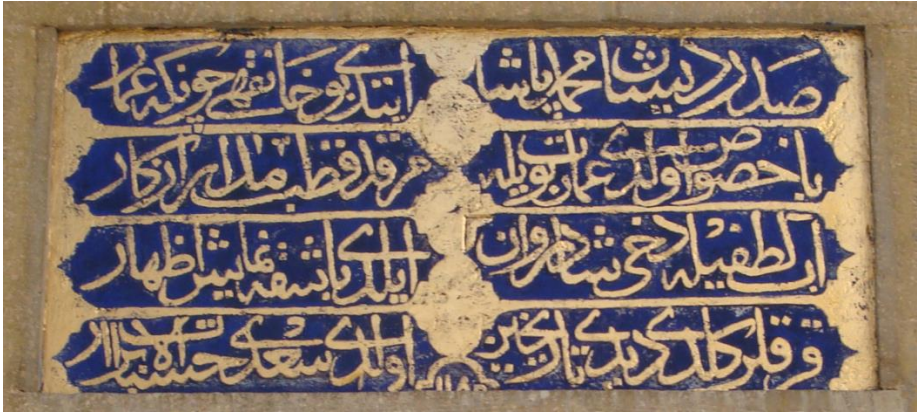 صدر ذیشان محمد پاشا
ایتدی بو خانقهی چونکه عمار
با خصوص اولدی عمارت بویله
مرقد قطب مدار
آب لطفیله دخی شادروان
ایلدی باشقه نمایش اظهار
قرقلر کلدی دیدی تاریخین
اولدی سعدی